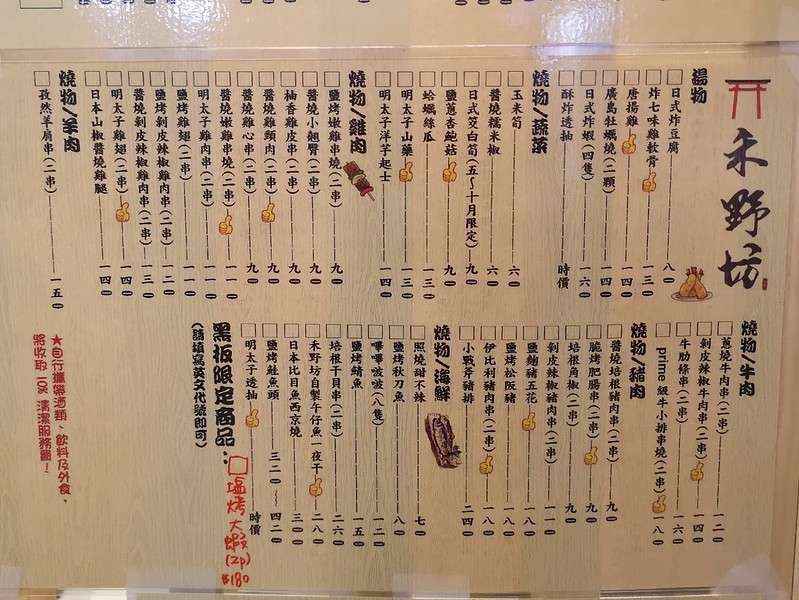 禾野坊
湯物
日式炸豆腐 八〇
炸七味雞軟骨 一三〇
唐揚雞 一四〇
廣島牡蠣燒(二顆) 一四〇
日式炸蝦(四隻) 一六〇
酥炸透抽 時價
燒物/蔬菜
玉米筍 六〇
醬燒糯米椒 六〇
日式茭白筍(五~十月限定) 九〇
鹽蔥杏鮑菇 九〇
蛤蠣絲瓜 一三〇
明太子山藥 一三〇
明太子洋芋起士 一四〇
燒物/雞肉
鹽烤嫩雞串燒(二串) 九〇
醬燒小翹臀(二串) 九〇
柚香雞皮串(二串) 九〇
醬燒雞頸肉(二串) 九〇
醬燒雞心串(二串) 九〇
醬燒嫩雞串燒(二串) 一一〇
明太子雞肉串(二串) 一一〇
鹽烤雞翅(二串) 一一〇
鹽烤剝皮辣椒雞肉串(二串) 一二〇
醬燒剝皮辣椒雞肉串(二串) 一三〇
明太子雞翅(二串) 一四〇
日本山椒醬燒雞腿 一四〇
燒物/羊肉
孜然羊肩串(二串) 一五〇
燒物/牛肉
蔥燒牛肉串(二串) 一二〇
剝皮辣椒牛肉串(二串) 一四〇
牛肋條串(二串) 一六〇
prime級牛小排串燒(二串) 一八〇
燒物/豬肉
醬燒培根豬肉串(二串) 九〇
脆烤肥腸串(二串) 九〇
培根角椒(二串) 九〇
剝皮辣椒豬肉串(二串) 一一〇
鹽麴豬五花 一八〇
鹽烤松阪豬 一八〇
伊比利豬肉串(二串) 一八〇
小戰斧豬排 二四〇
燒物/海鮮
照燒甜不辣 七〇
鹽烤秋刀魚 八〇
嗶嗶啵啵(八隻) 一二〇
鹽烤鯖魚 一五〇
培根干貝串(二串) 二六〇
禾野坊自製午仔魚一夜干 二八〇
日本比目魚西京燒 三〇〇
鹽烤鮭魚頭 三二〇~四二〇
明太子透抽 時價
黑板限定商品:
(請填寫英文代號即可)
塩烤大蝦
(2p)
$180
★自行攜帶酒類、飲料及外食,
將收取10%清潔服務圖!